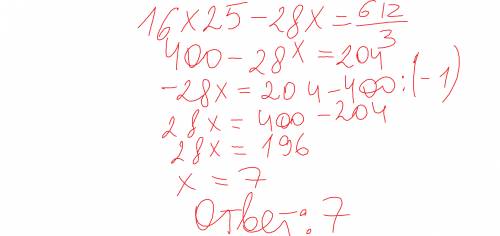 16×25-28x=612/3
400-28x=204
-28x=204-400:(-1)
28x=400-204
28x=196
x=7
Ответ:7